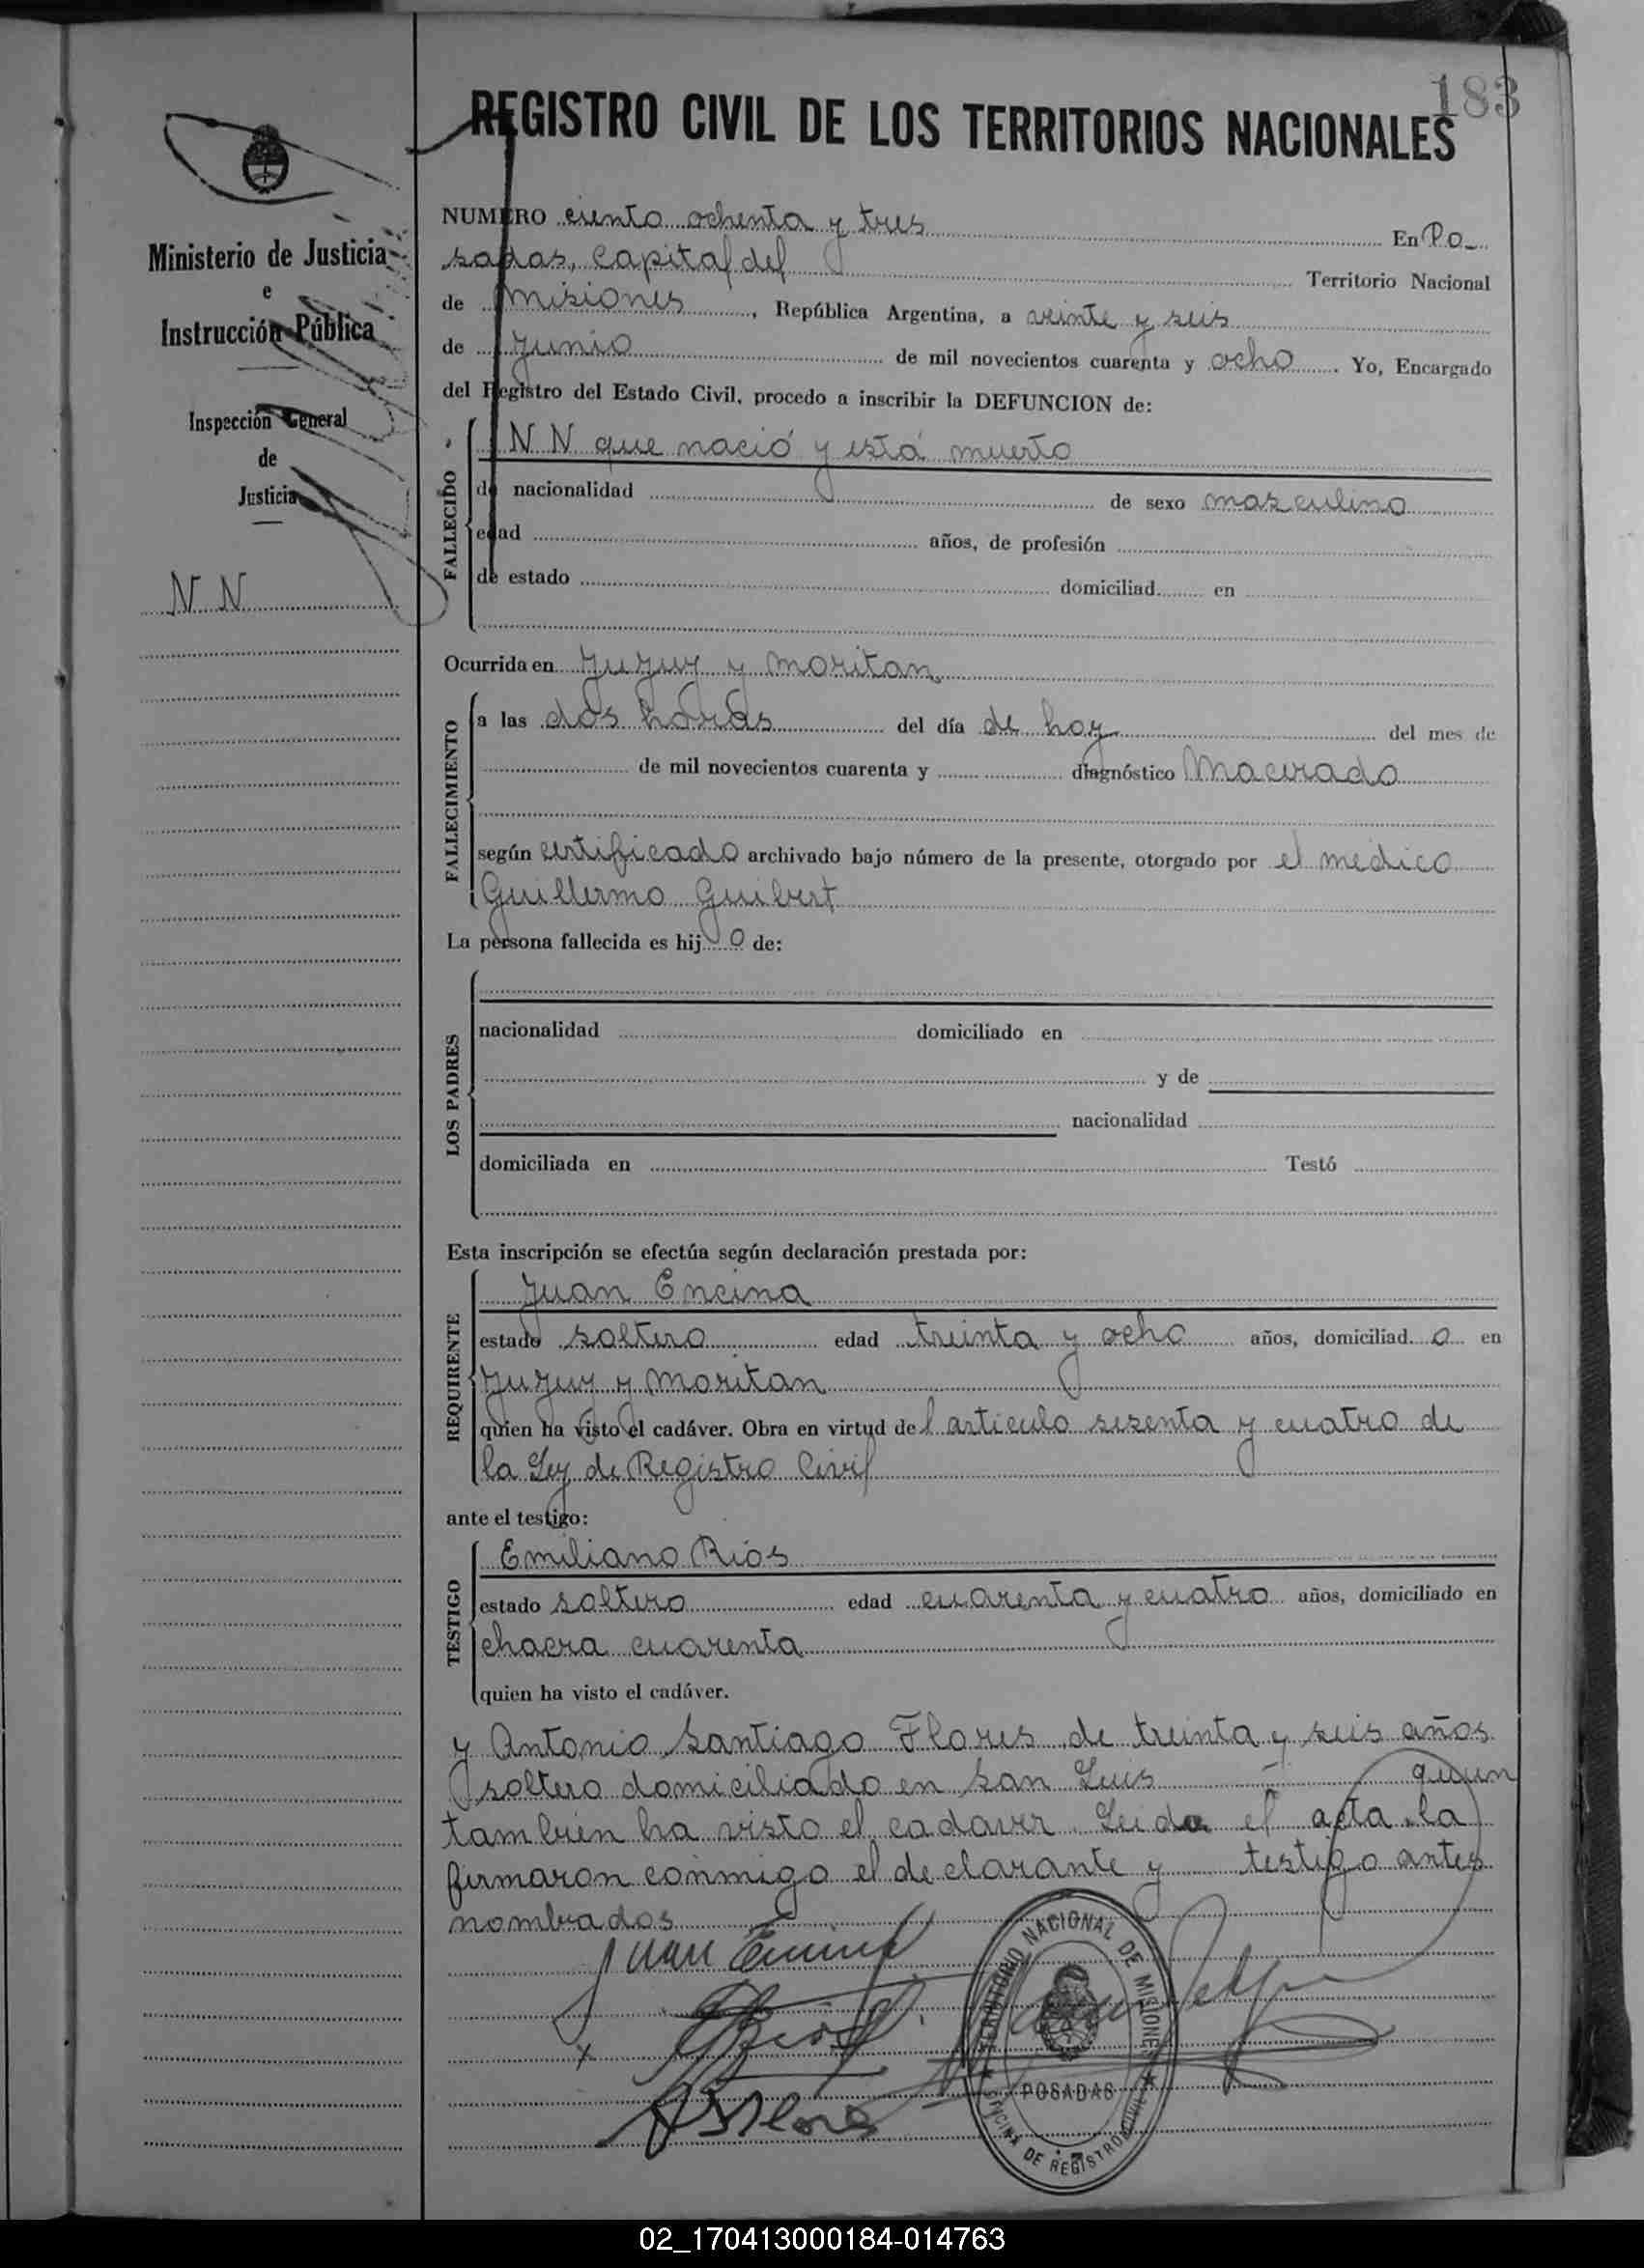 183
REGISTRO CIVIL DE LOS TERRITORIOS NACIONALES
Ministerio de Justicia
e
Instrucción Pública
Inspección General
de
Justicia
N N
NUMERO ciento ochenta y tres En Po_
sadas, Capital del Territorio Nacional
de Misiones, República Argentina, a veinte y seis
de Junio de mil novecientos cuarenta y ocho. Yo, Encargado
del Registro del Estado Civil, procedo a inscribir la DEFUNCION de:
FALLECIDO
N N que nació y está muerto
de nacionalidad de sexo masculino
edad años, de profesión
de estado domiciliad en
Ocurrida en Jujuy y Moritan
FALLECIMIENTO
a las dos horas del día de hoy del mes de
de mil novecientos cuarenta y diagnóstico Macerado
según certificado archivado bajo número de la presente, otorgado por el medico
Guillermo Guibert
La persona fallecida es hij o de:
LOS PADRES
nacionalidad domiciliado en
y de
nacionalidad
domiciliada en Testó
Esta inscripción se efectúa según declaración prestada por:
REQUIRENTE
Juan Encina
estado soltero edad treinta y ocho años, domiciliad o en
Jujuy y Moritan
quien ha visto el cadáver. Obra en virtud del articulo sesenta y cuatro de
la Ley de Registro Civil
ante el testigo:
TESTIGO
Emiliano Rios
estado soltero edad cuarenta y cuatro años, domiciliado en
chacra cuarenta
quien ha visto el cadáver.
y Antonio Santiago Flores de treinta y seis años
soltero domiciliado en San Luis quien
tambien ha visto el cadaver. Leida el acta la
firmaron conmigo el declarante y testigo antes
nombrados
Juan Encina
TERRITORIO NACIONAL DE MISIONES
POSADAS
OFICINA DE REGISTRO CIVIL
02_170413000184-014763